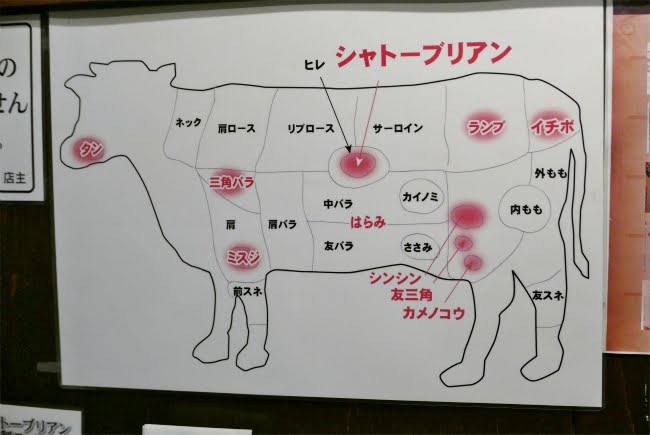 の
せん
店主
ヒレ
シャトーブリアン
ネック
肩ロース
リブロース
サーロイン
ランプ
イチボ
タン
三角バラ
外もも
中バラ
カイノミ
内もも
肩
肩バラ
はらみ
友バラ
ささみ
ミスジ
シンシン
友三角
カメノコウ
前スネ
友スネ
トーブリアン